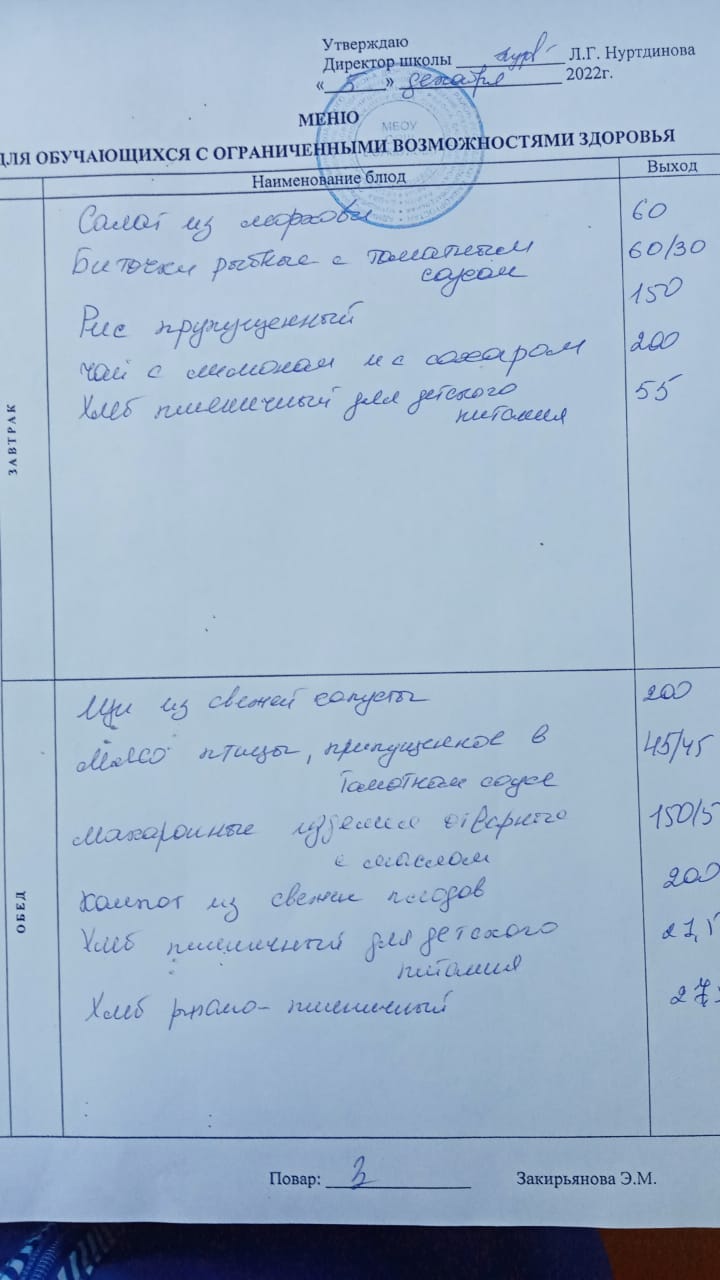 Утверждаю
Директор школы Л.Г. Нуртдинова
« 5 » декабря 2022г.
МЕНЮ
ДЛЯ ОБУЧАЮЩИХСЯ С ОГРАНИЧЕННЫМИ ВОЗМОЖНОСТЯМИ ЗДОРОВЬЯ
Наименование блюд Выход
МБОУ
ЗАВТРАК
Салат из моркови 60
Биточки рыбные с томатным 60/30
соусом
Рис припущенный 150
Чай с лимоном и с сахаром 200
Хлеб пшеничный для детского 55
питания
ОБЕД
Щи из свежей капусты 200
Мясо птицы, припущенное в 45/45
томатном соусе
Макаронные изделия отварного 150/5
с маслом
Компот из свежих плодов 200
Хлеб пшеничный для детского
питания
Хлеб ржано-пшеничный
Повар: Закирьянова Э.М.